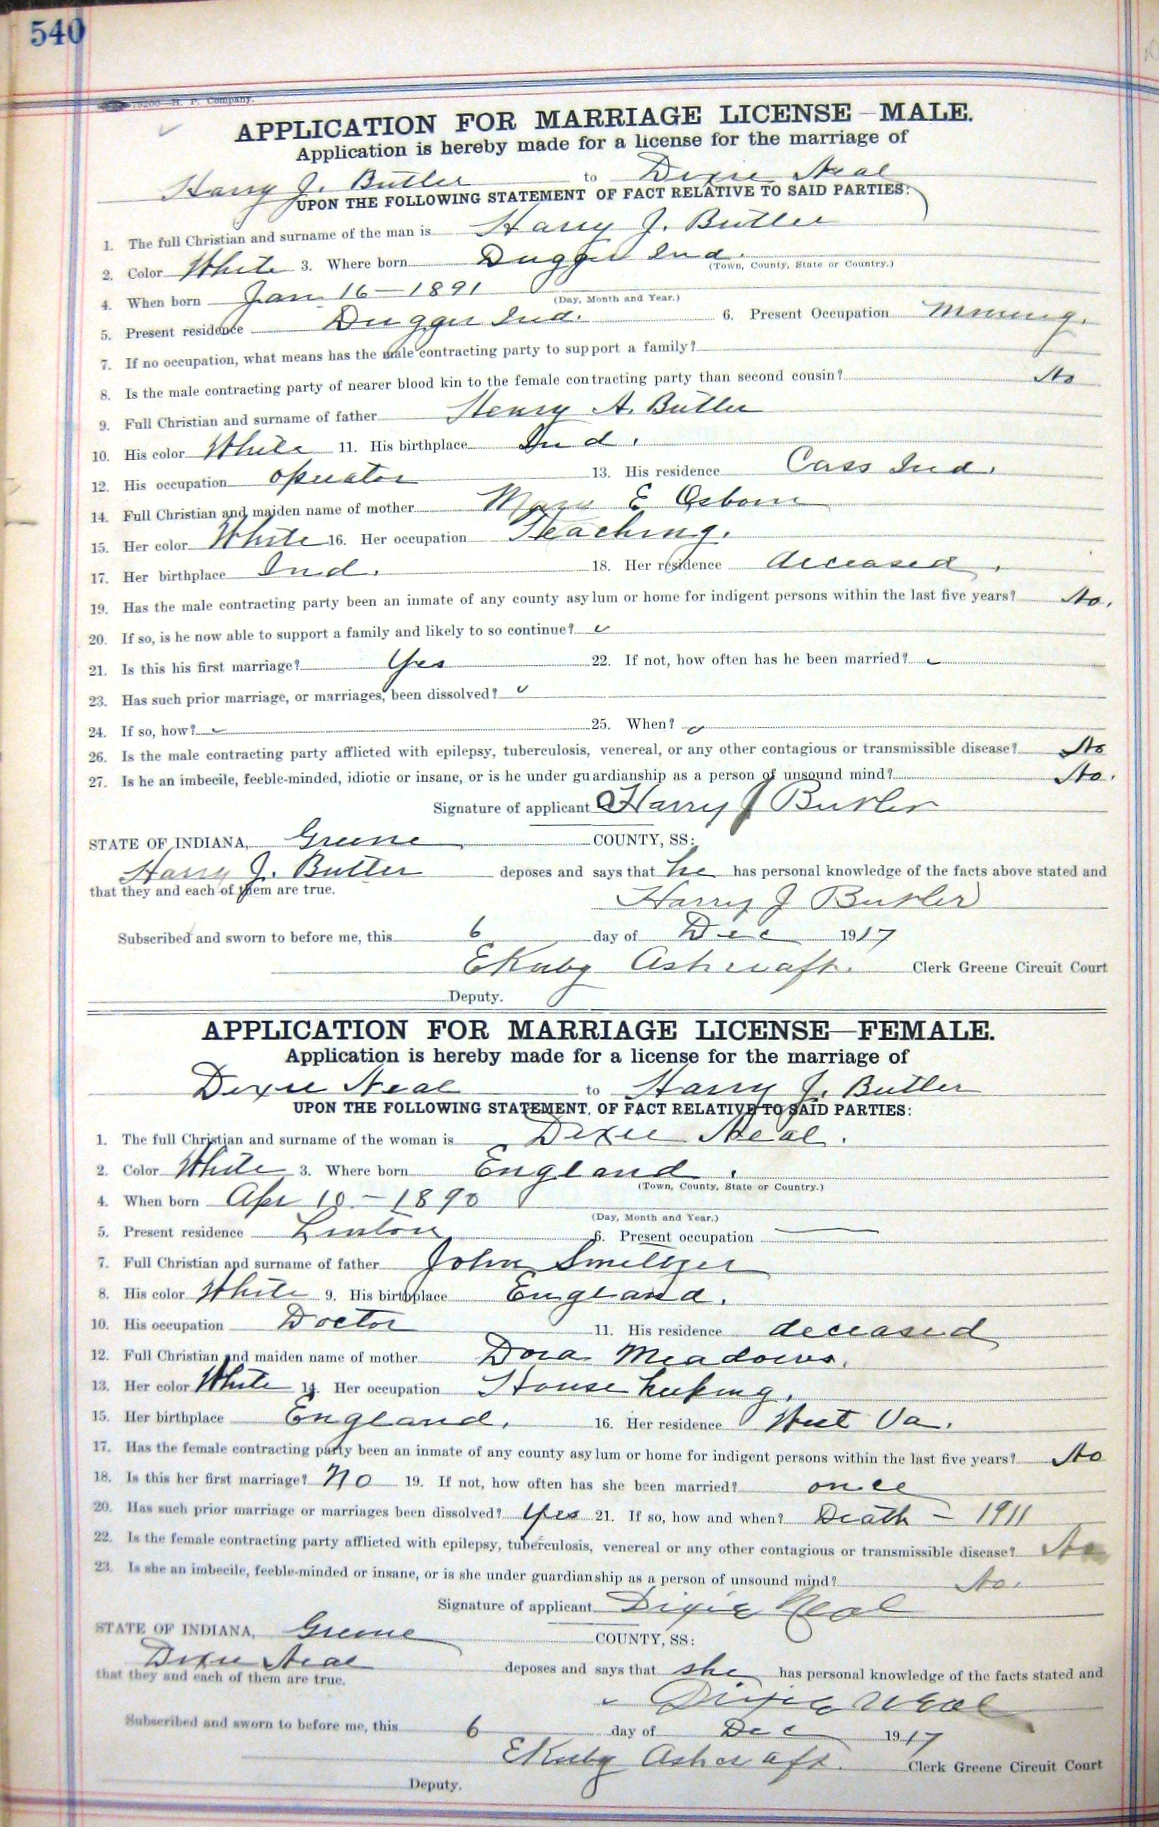 540
APPLICATION FOR MARRIAGE LICENSE—MALE.
Application is hereby made for a license for the marriage of
Harry J. Butler to Dixie Neal
UPON THE FOLLOWING STATEMENT OF FACT RELATIVE TO SAID PARTIES:
1. The full Christian and surname of the man is Harry J. Butler
2. Color White 3. Where born Dugger Ind.
(Town, County, State or Country.)
4. When born Jan 16—1891
(Day, Month and Year.)
5. Present residence Dugger Ind. 6. Present Occupation Mining.
7. If no occupation, what means has the male contracting party to support a family?
8. Is the male contracting party of nearer blood kin to the female contracting party than second cousin? No
9. Full Christian and surname of father Henry A. Butler
10. His color White 11. His birthplace Ind.
12. His occupation operator 13. His residence Cass Ind.
14. Full Christian and maiden name of mother Mary E Osborn
15. Her color White 16. Her occupation Teaching.
17. Her birthplace Ind. 18. Her residence deceased.
19. Has the male contracting party been an inmate of any county asylum or home for indigent persons within the last five years? No.
20. If so, is he now able to support a family and likely to so continue?
21. Is this his first marriage? Yes 22. If not, how often has he been married?
23. Has such prior marriage, or marriages, been dissolved?
24. If so, how? 25. When?
26. Is the male contracting party afflicted with epilepsy, tuberculosis, venereal, or any other contagious or transmissible disease? No
27. Is he an imbecile, feeble-minded, idiotic or insane, or is he under guardianship as a person of unsound mind? No.
Signature of applicant Harry J Butler
STATE OF INDIANA, Greene COUNTY, SS:
Harry J. Butler deposes and says that he has personal knowledge of the facts above stated and
that they and each of them are true.
Harry J Butler
Subscribed and sworn to before me, this 6 day of Dec 1917
Ashcraft. Clerk Greene Circuit Court
Deputy.
APPLICATION FOR MARRIAGE LICENSE—FEMALE.
Application is hereby made for a license for the marriage of
Dixie Neal to Harry J. Butler
UPON THE FOLLOWING STATEMENT OF FACT RELATIVE TO SAID PARTIES:
1. The full Christian and surname of the woman is Dixie Neal.
2. Color White 3. Where born England.
(Town, County, State or Country.)
4. When born Apr 10—1890
(Day, Month and Year.)
5. Present residence Linton 6. Present occupation
7. Full Christian and surname of father John Smeltzer
8. His color White 9. His birthplace England.
10. His occupation Doctor 11. His residence deceased
12. Full Christian and maiden name of mother Dora Meadows.
13. Her color White 14. Her occupation House keeping.
15. Her birthplace England. 16. Her residence West Va.
17. Has the female contracting party been an inmate of any county asylum or home for indigent persons within the last five years? No
18. Is this her first marriage? No 19. If not, how often has she been married? once
20. Has such prior marriage or marriages been dissolved? Yes 21. If so, how and when? Death — 1911
22. Is the female contracting party afflicted with epilepsy, tuberculosis, venereal or any other contagious or transmissible disease? No
23. Is she an imbecile, feeble-minded or insane, or is she under guardianship as a person of unsound mind? No.
Signature of applicant Dixie Neal
STATE OF INDIANA, Greene COUNTY, SS:
Dixie Neal deposes and says that she has personal knowledge of the facts stated and
that they and each of them are true.
Dixie Neal
Subscribed and sworn to before me, this 6 day of Dec 1917
Ashcraft. Clerk Greene Circuit Court
Deputy.